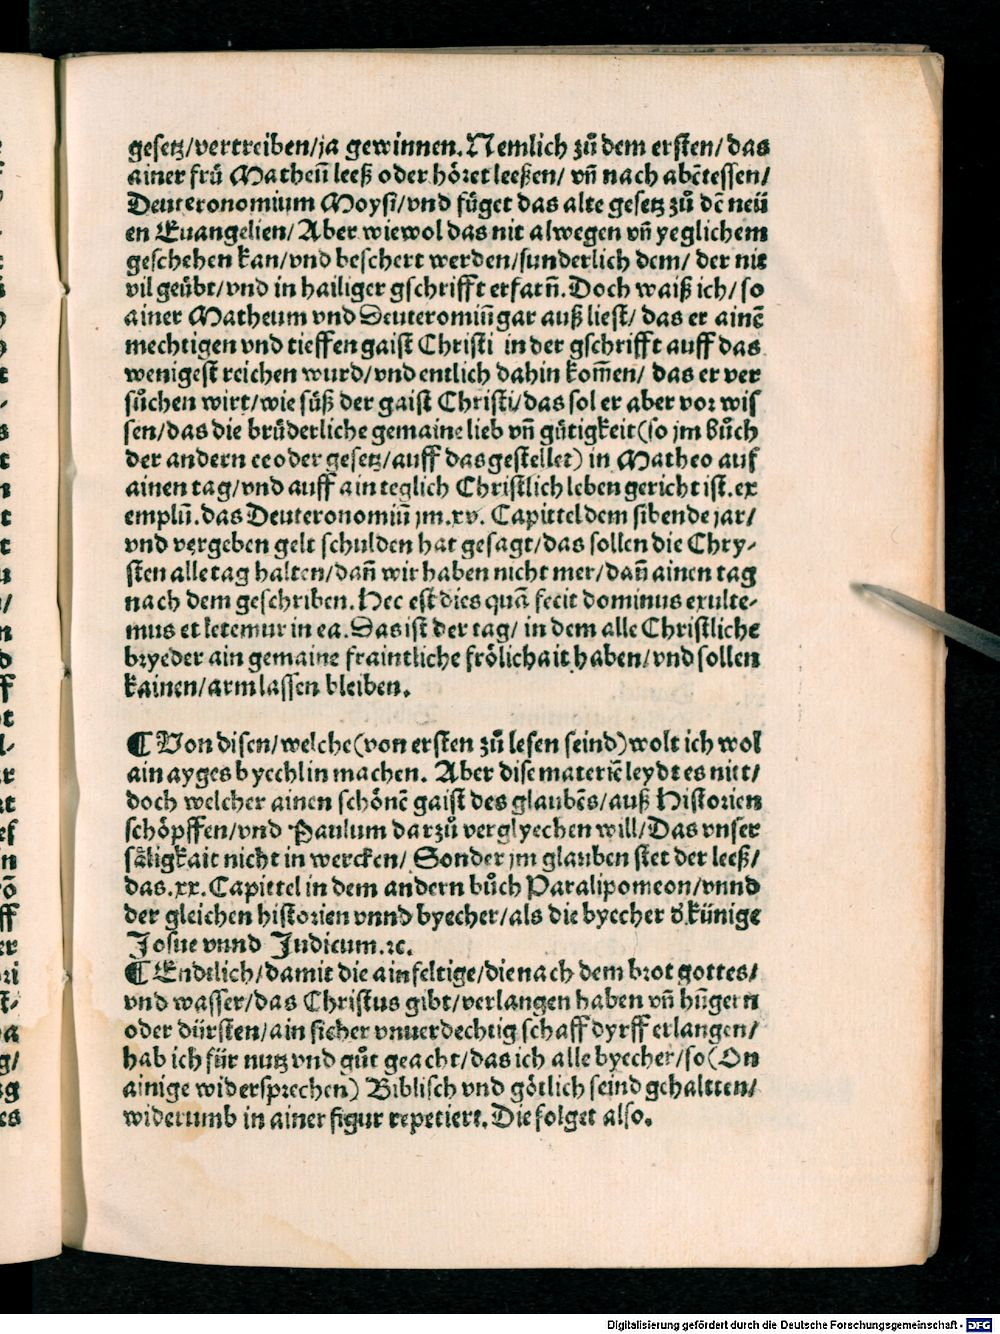 gesetz/vertreiben/ja gewinnen. Nemlich zů dem ersten/das
ainer frü Matheū leeß oder höret leeßen/ vn̄ nach abētessen/
Deuteronomium Moysi/vnd füget das alte gesetz zů dē neü
en Euangelien/ Aber wiewol das nit alwegen vn̄ yeglichem
geschehen kan/vnd beschert werden/sunderlich dem/ der nit
vil geübt/vnd in hailiger gschrifft erfarn̄. Doch waiß ich/so
ainer Matheum vnd Deuteromiū gar auß liest/ das er ainē
mechtigen vnd tieffen gaist Christi in der gschrifft auff das
wenigest reichen wurd/vnd entlich dahin kom̄en/ das er ver
sůchen wirt/wie süß der gaist Christi/das sol er aber vor wis
sen/das die brüderliche gemaine lieb vn̄ gütigkeit(so jm Bůch
der andern ee oder gesetz/auff das gestellet) in Matheo auf
ainen tag/vnd auff ain teglich Christlich leben gericht ist. ex
emplū. das Deuteronomiū jm .xv. Capittel dem sibende jar/
vnd vergeben gelt schulden hat gesagt/das sollen die Chry-
sten alle tag halten/dan̄ wir haben nicht mer/dan̄ ainen tag
nach dem geschriben. Hec est dies quā fecit dominus exulte-
mus et letemur in ea. Das ist der tag/ in dem alle Christliche
bryeder ain gemaine fraintliche frölichait haben/vnd sollen
kainen/arm lassen bleiben.
¶ Von disen/welche(von ersten zů lesen seind)wolt ich wol
ain ayges byechlin machen. Aber dise materiē leydt es nitt/
doch welcher ainen schönē gaist des glaubēs/auß Historien
schöpffen/vnd Paulum darzů verglyechen will/Das vnser
säligkait nicht in wercken/ Sonder jm glauben stet der leeß/
das .xx. Capittel in dem andern bůch Paralipomeon/vnnd
der gleichen historien vnnd byecher/als die byecher d̕ künige
Josue vnnd Judicum.ꝛc.
¶ Endtlich/damit die ainfeltige/die nach dem brot gottes/
vnd wasser/das Christus gibt/verlangen haben vn̄ hungern
oder dürsten/ain sicher vnuerdechtig schaff dyrff erlangen/
hab ich für nutz vnd gůt geacht/das ich alle byecher/so(On
ainige widersprechen) Biblisch vnd götlich seind gehaltten/
widerumb in ainer figur repetiert. Die folget also.
Digitalisierung gefördert durch die Deutsche Forschungsgemeinschaft - DFG